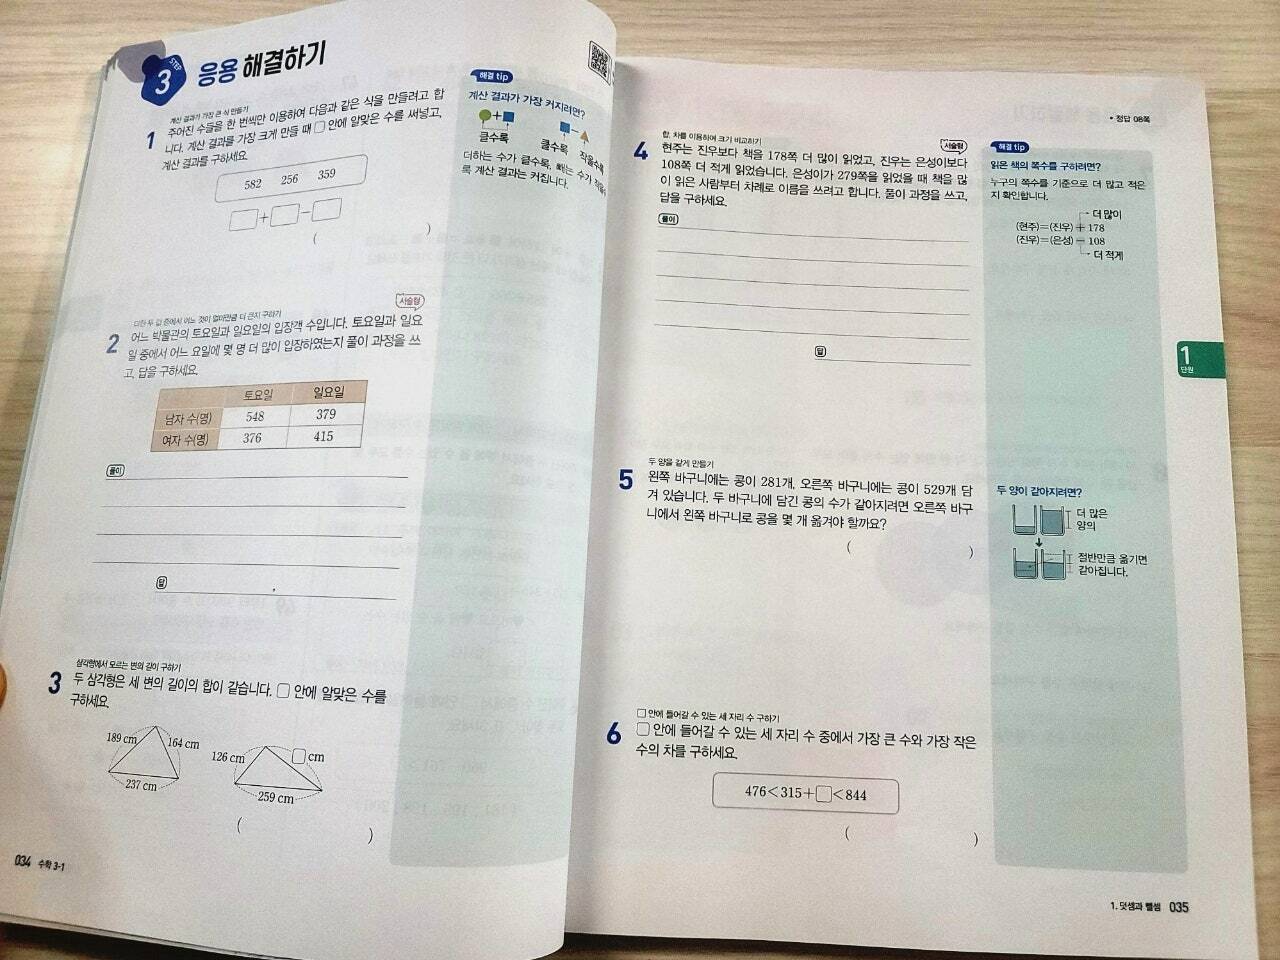 STEP
3 응용 해결하기
계산 결과가 가장 큰 식 만들기
1 주어진 수들을 한 번씩만 이용하여 다음과 같은 식을 만들려고 합
니다. 계산 결과를 가장 크게 만들 때 □ 안에 알맞은 수를 써넣고,
계산 결과를 구하세요.
582 256 359
□+□-□
( )
해결 tip
계산 결과가 가장 커지려면?
●+■ ■-▲
클수록 클수록 작을수록
더하는 수가 클수록, 빼는 수가 작을수
록 계산 결과는 커집니다.
서술형
더한 두 값 중에서 어느 것이 얼마만큼 더 큰지 구하기
2 어느 박물관의 토요일과 일요일의 입장객 수입니다. 토요일과 일요
일 중에서 어느 요일에 몇 명 더 많이 입장하였는지 풀이 과정을 쓰
고, 답을 구하세요.
토요일 일요일
남자 수(명) 548 379
여자 수(명) 376 415
풀이
답
삼각형에서 모르는 변의 길이 구하기
3 두 삼각형은 세 변의 길이의 합이 같습니다. □ 안에 알맞은 수를
구하세요.
189 cm 164 cm
237 cm
126 cm □ cm
259 cm
( )
034 수학 3-1
• 정답 08쪽
합, 차를 이용하여 크기 비교하기
서술형
4 현주는 진우보다 책을 178쪽 더 많이 읽었고, 진우는 은성이보다
108쪽 더 적게 읽었습니다. 은성이가 279쪽을 읽었을 때 책을 많
이 읽은 사람부터 차례로 이름을 쓰려고 합니다. 풀이 과정을 쓰고,
답을 구하세요.
풀이
답
해결 tip
읽은 책의 쪽수를 구하려면?
누구의 쪽수를 기준으로 더 많고 적은
지 확인합니다.
더 많이
(현주)=(진우)+178
(진우)=(은성)-108
더 적게
1
단원
두 양을 같게 만들기
5 왼쪽 바구니에는 콩이 281개, 오른쪽 바구니에는 콩이 529개 담
겨 있습니다. 두 바구니에 담긴 콩의 수가 같아지려면 오른쪽 바구
니에서 왼쪽 바구니로 콩을 몇 개 옮겨야 할까요?
( )
두 양이 같아지려면?
더 많은
양의
절반만큼 옮기면
같아집니다.
□ 안에 들어갈 수 있는 세 자리 수 구하기
6 □ 안에 들어갈 수 있는 세 자리 수 중에서 가장 큰 수와 가장 작은
수의 차를 구하세요.
476<315+□<844
( )
1. 덧셈과 뺄셈 035